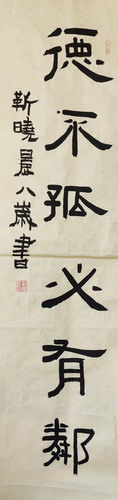 德不孤必有鄰
靳曉晨八歲書